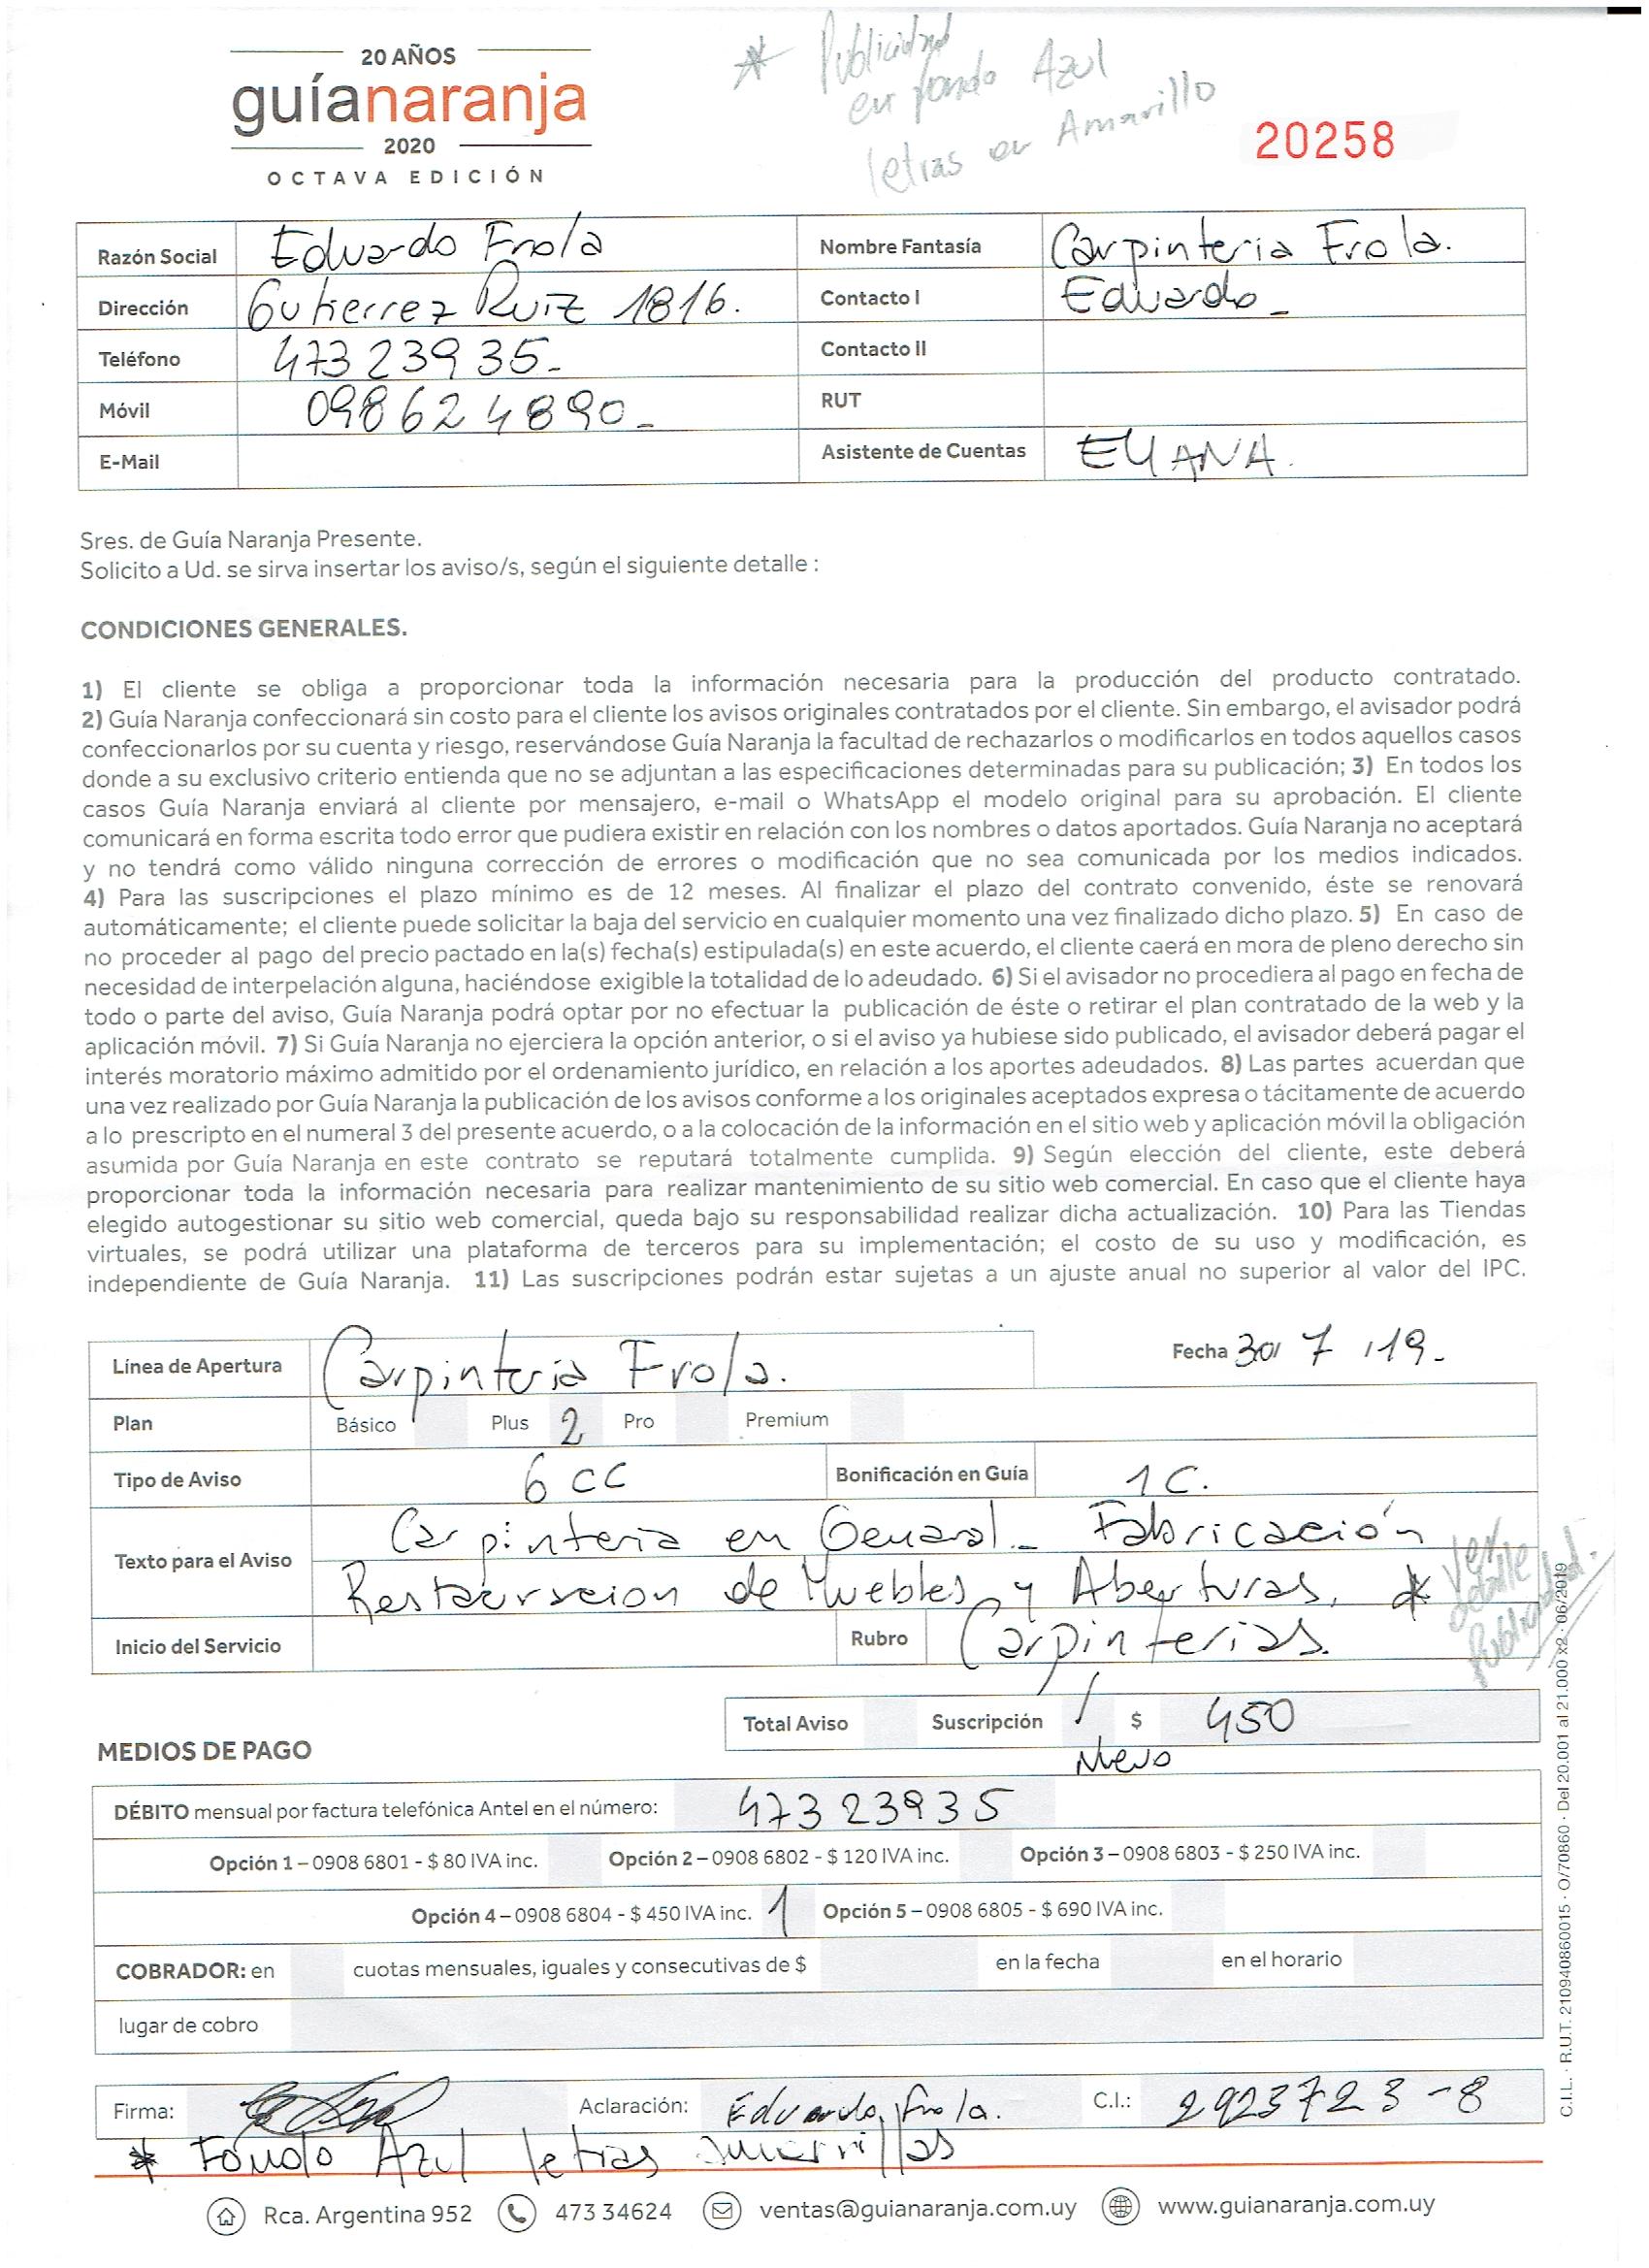 20 AÑOS
guíanaranja
2020
OCTAVA EDICIÓN
* Publicidad
en fondo Azul
letras en Amarillo
20258
Razón Social Eduardo Frola Nombre Fantasía Carpinteria Frola.
Dirección Gutierrez Ruiz 1816. Contacto I Eduardo_
Teléfono 473 23935- Contacto II
Móvil 098624890_ RUT
E-Mail Asistente de Cuentas ELIANA.
Sres. de Guía Naranja Presente.
Solicito a Ud. se sirva insertar los aviso/s, según el siguiente detalle :
CONDICIONES GENERALES.
1) El cliente se obliga a proporcionar toda la información necesaria para la producción del producto contratado.
2) Guía Naranja confeccionará sin costo para el cliente los avisos originales contratados por el cliente. Sin embargo, el avisador podrá
confeccionarlos por su cuenta y riesgo, reservándose Guía Naranja la facultad de rechazarlos o modificarlos en todos aquellos casos
donde a su exclusivo criterio entienda que no se adjuntan a las especificaciones determinadas para su publicación; 3) En todos los
casos Guía Naranja enviará al cliente por mensajero, e-mail o WhatsApp el modelo original para su aprobación. El cliente
comunicará en forma escrita todo error que pudiera existir en relación con los nombres o datos aportados. Guía Naranja no aceptará
y no tendrá como válido ninguna corrección de errores o modificación que no sea comunicada por los medios indicados.
4) Para las suscripciones el plazo mínimo es de 12 meses. Al finalizar el plazo del contrato convenido, éste se renovará
automáticamente; el cliente puede solicitar la baja del servicio en cualquier momento una vez finalizado dicho plazo. 5) En caso de
no proceder al pago del precio pactado en la(s) fecha(s) estipulada(s) en este acuerdo, el cliente caerá en mora de pleno derecho sin
necesidad de interpelación alguna, haciéndose exigible la totalidad de lo adeudado. 6) Si el avisador no procediera al pago en fecha de
todo o parte del aviso, Guía Naranja podrá optar por no efectuar la publicación de éste o retirar el plan contratado de la web y la
aplicación móvil. 7) Si Guía Naranja no ejerciera la opción anterior, o si el aviso ya hubiese sido publicado, el avisador deberá pagar el
interés moratorio máximo admitido por el ordenamiento jurídico, en relación a los aportes adeudados. 8) Las partes acuerdan que
una vez realizado por Guía Naranja la publicación de los avisos conforme a los originales aceptados expresa o tácitamente de acuerdo
a lo prescripto en el numeral 3 del presente acuerdo, o a la colocación de la información en el sitio web y aplicación móvil la obligación
asumida por Guía Naranja en este contrato se reputará totalmente cumplida. 9) Según elección del cliente, este deberá
proporcionar toda la información necesaria para realizar mantenimiento de su sitio web comercial. En caso que el cliente haya
elegido autogestionar su sitio web comercial, queda bajo su responsabilidad realizar dicha actualización. 10) Para las Tiendas
virtuales, se podrá utilizar una plataforma de terceros para su implementación; el costo de su uso y modificación, es
independiente de Guía Naranja. 11) Las suscripciones podrán estar sujetas a un ajuste anual no superior al valor del IPC.
Línea de Apertura Carpinteria Frola. Fecha 30/ 7 /19-
Plan Básico Plus 2 Pro Premium
Tipo de Aviso 6 CC Bonificación en Guía 1 C.
Texto para el Aviso Carpinteria en General_ Fabricación
Restauracion de Muebles y Aberturas. *
Ver detalle Publicidad.
Inicio del Servicio Rubro Carpinterias.
Total Aviso Suscripción / $ 450
Nuevo
MEDIOS DE PAGO
DÉBITO mensual por factura telefónica Antel en el número: 473 23935
Opción 1 – 0908 6801 - $ 80 IVA inc. Opción 2 – 0908 6802 - $ 120 IVA inc. Opción 3 – 0908 6803 - $ 250 IVA inc.
Opción 4 – 0908 6804 - $ 450 IVA inc. 1 Opción 5 – 0908 6805 - $ 690 IVA inc.
COBRADOR: en cuotas mensuales, iguales y consecutivas de $ en la fecha en el horario
lugar de cobro
Firma: Aclaración: Eduardo Frola. C.I.: 2923723-8
* Fondo Azul letras amarillas
Rca. Argentina 952 473 34624 ventas@guianaranja.com.uy www.guianaranja.com.uy
C.I.L. · R.U.T. 210940860015 · O/70860 · Del 20.001 al 21.000 x2 · 06/2019